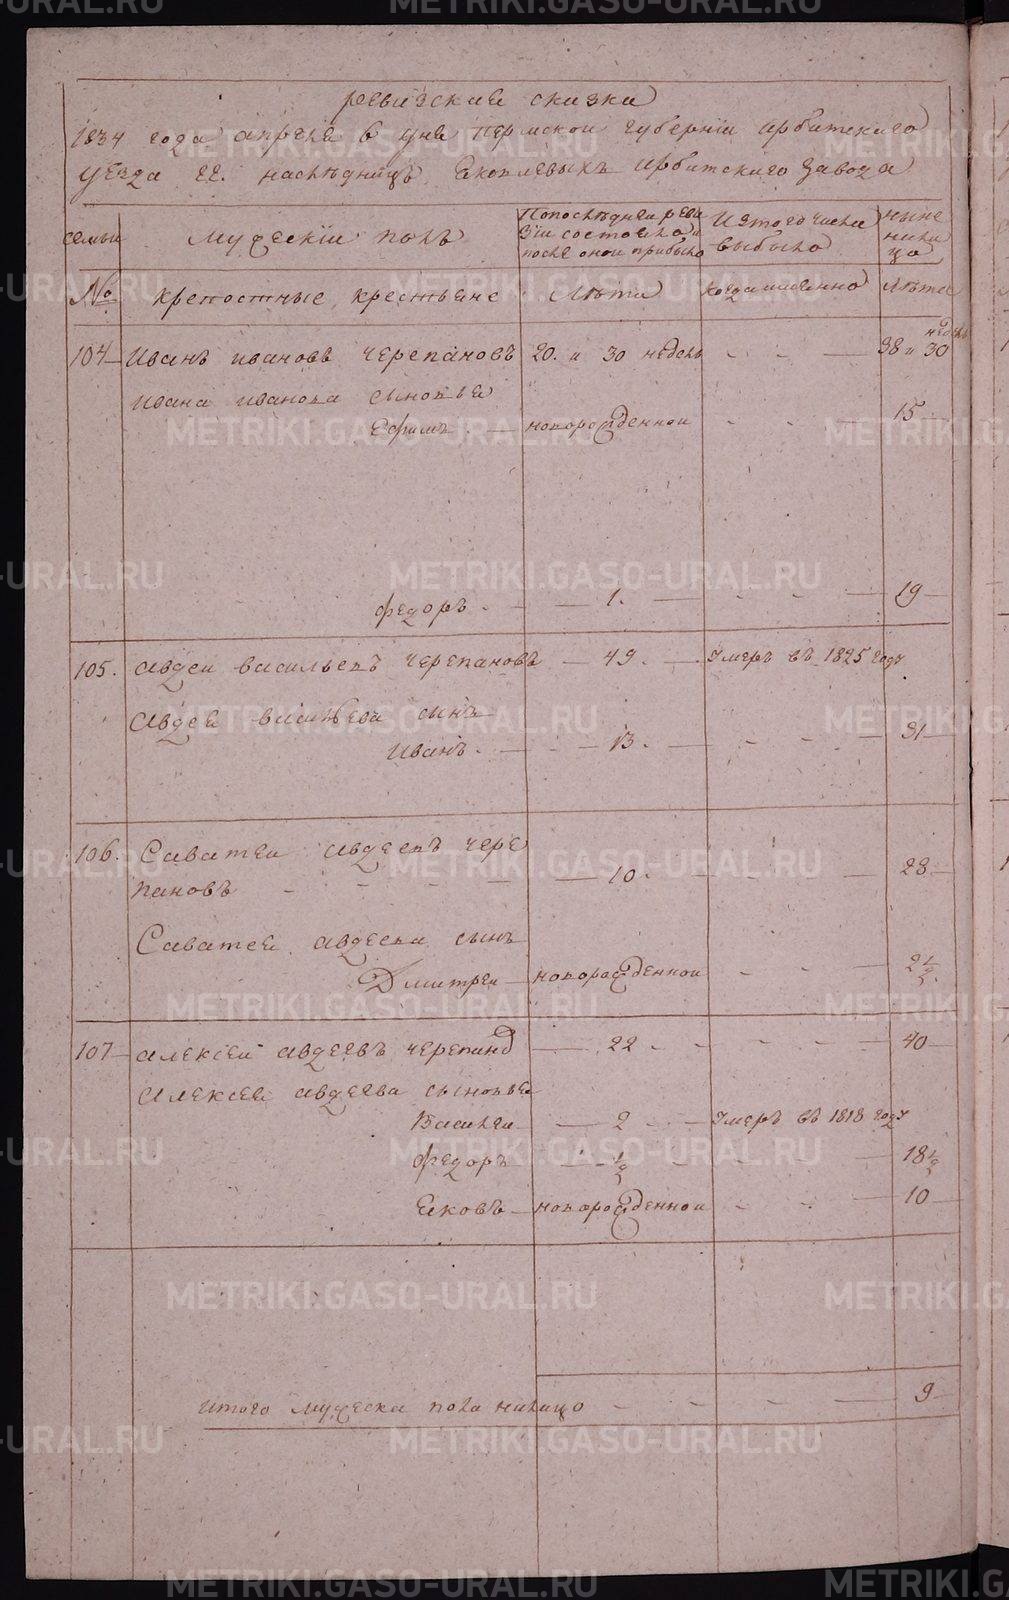 ревизские сказки
1834 года апреля 6 дня Пермской губернии ирбитского
уезда гг. наследницъ Яковлевыхъ ирбитского завода
семьи
мужескiй полъ
По последней реви
зiи состояло и
после оной прибыло
Изтого числа
выбыло
ныне
нали
цо
№ крепостные крестьяне Лета когда именно Лета
104 Иванъ ивановъ черепановъ 20. и 30 недель - - 38 и 30 недель
ивана иванова сыновья
Ефимъ новорожденной - - 15
федоръ. - 1. - - 19
105. авдей васильевъ черепановъ - 49. - Умеръ въ 1825 году
Авдея васильева сынъ
Иванъ. - 13. - - 31
106. Саватей авдеевъ чере
пановъ - - - - 10. - - 28
Саватея авдеева сынъ
Дмитрей новорожденной - - 2½.
107 алексей авдеевъ черепанов - 22 - - - 40
Алексея авдеева сыновья
Василей - 2 - Умеръ въ 1818 году
федоръ - ½ - - 18½
Яковъ новорожденной - - 10
итого мужеска пола налицо - - - 9
METRIKI.GASO-URAL.RU